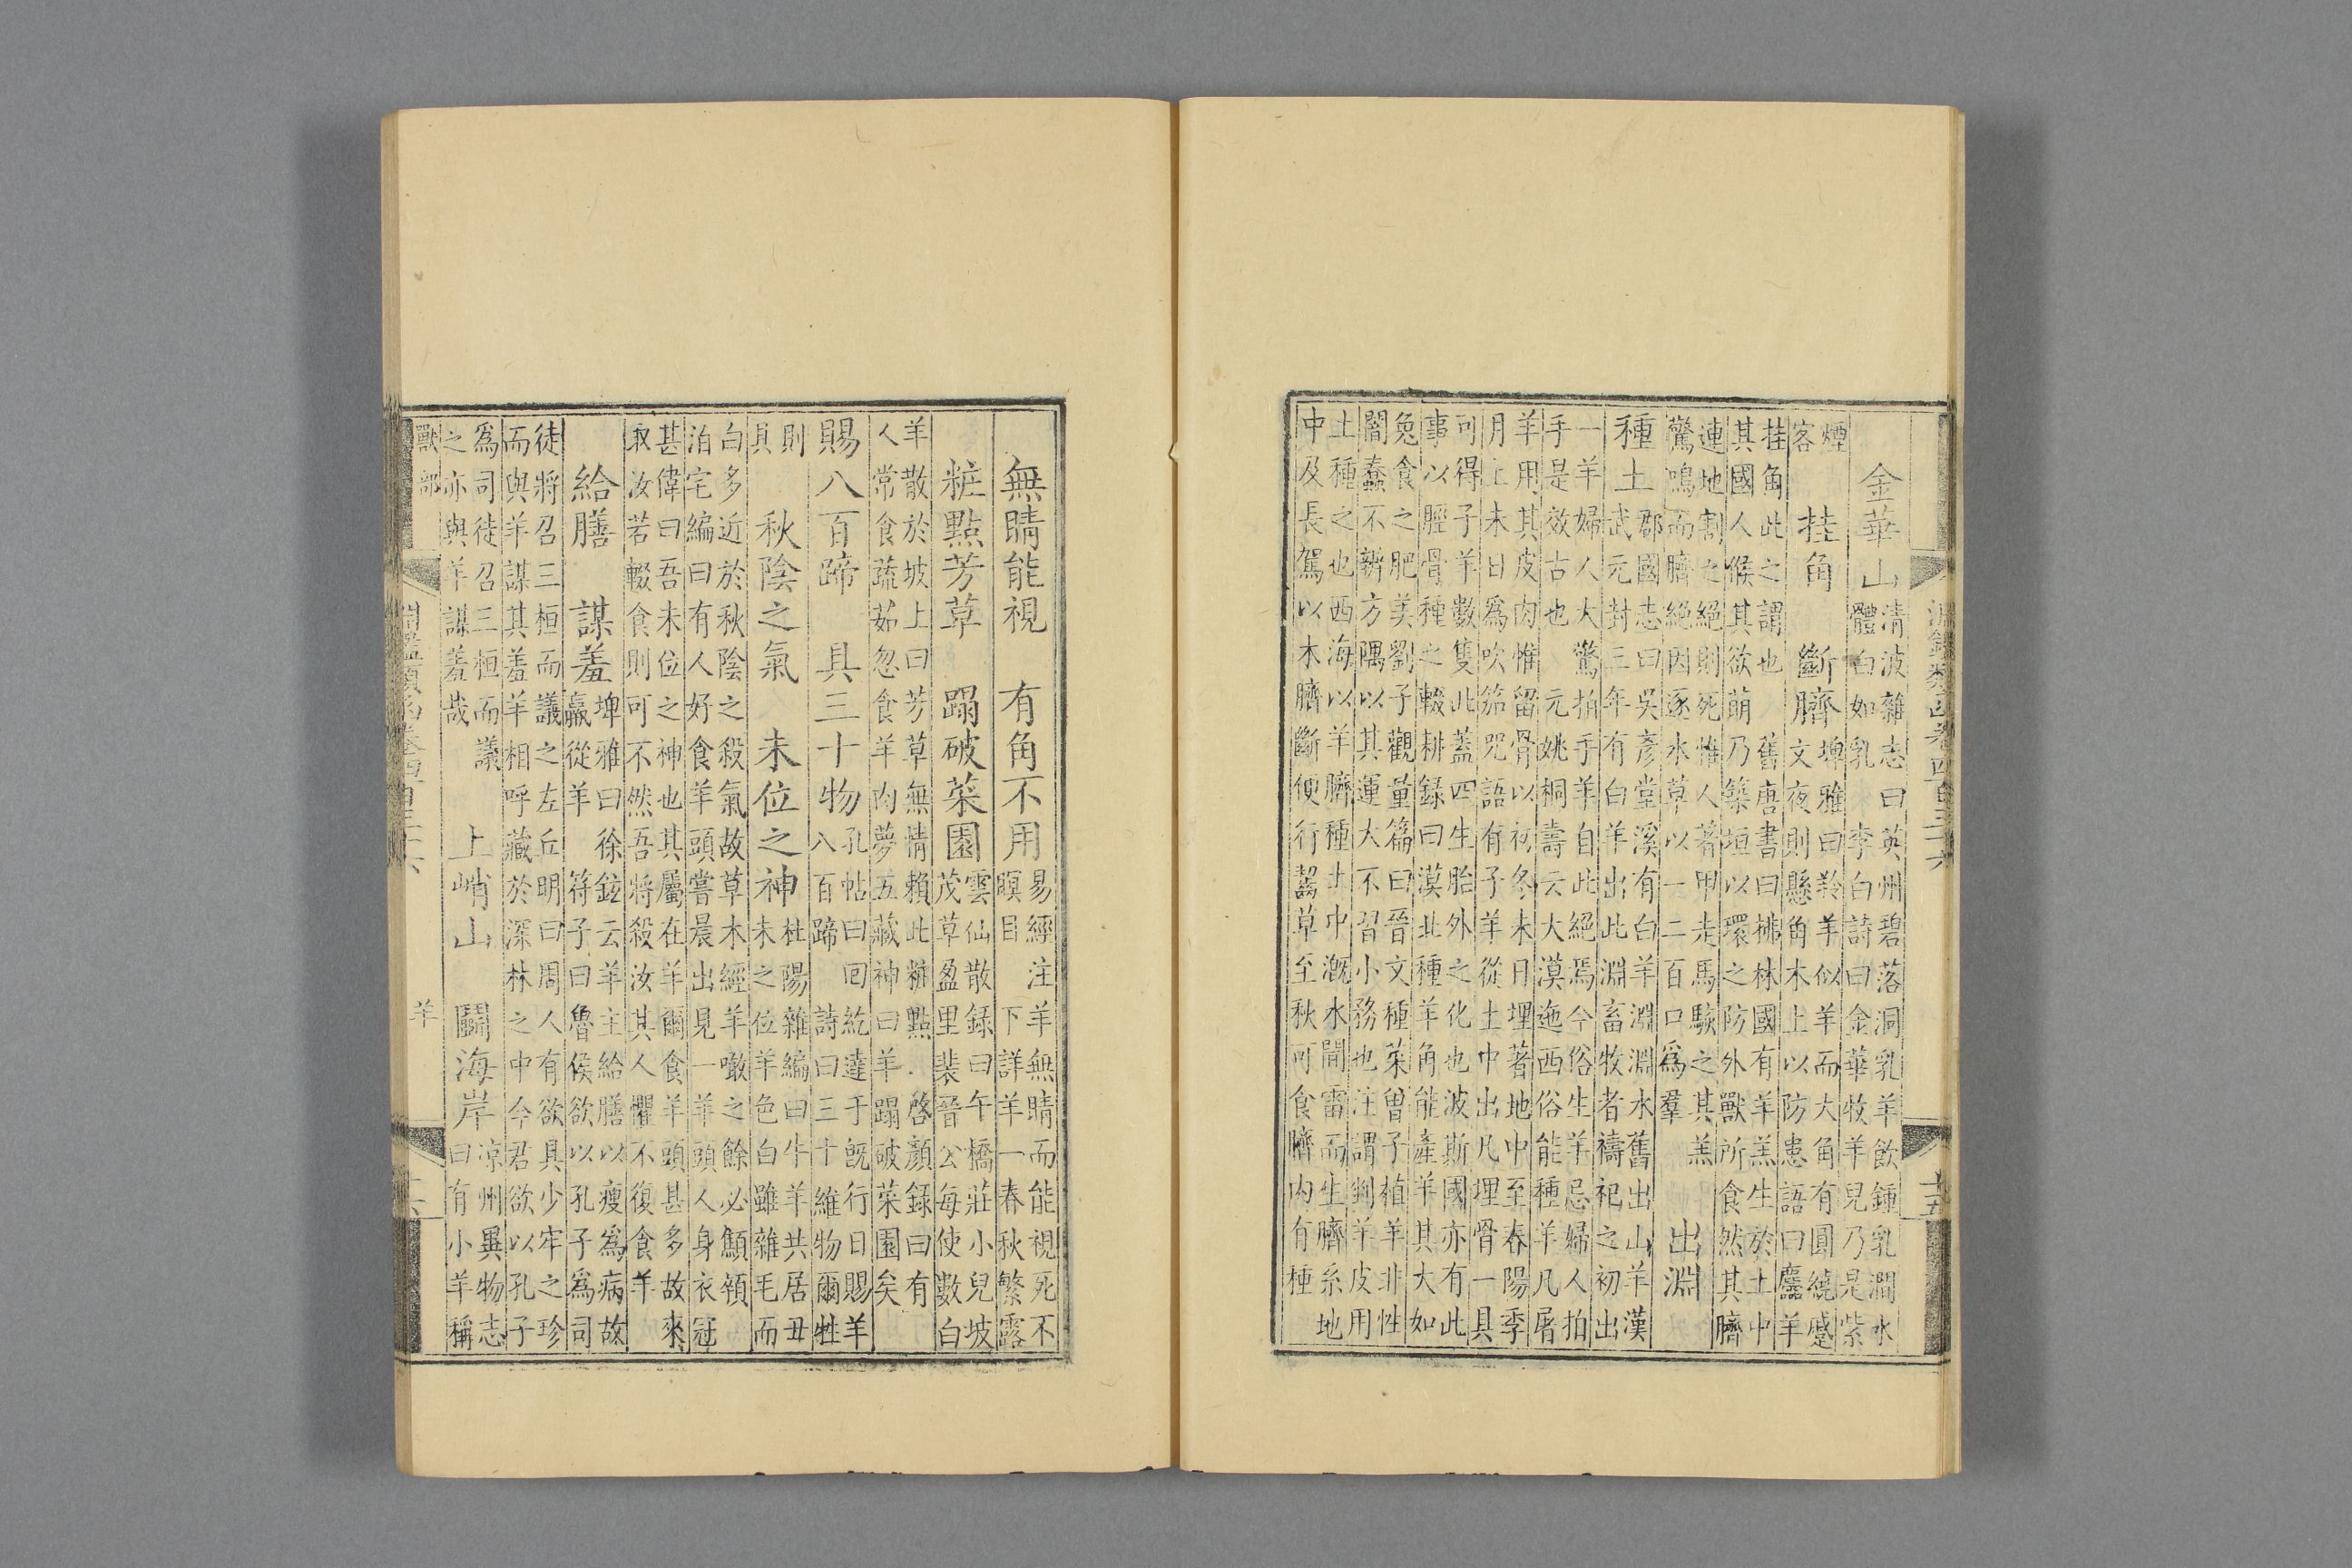 淵鑑類函卷四百三十六 十五
金華山
清波雜志曰英州碧落洞乳羊飲鍾乳澗水
體白如乳 李白詩曰金華牧羊兒乃是紫
煙
客
挂角 斷臍
埤雅曰羚羊似羊而大角有圓繞蹙
文夜則懸角木上以防患語曰麢羊
挂角此之謂也 舊唐書曰拂林國有羊羔生於土中
其國人候其欲萌乃築垣以環之防外獸所食然其臍
連地割之絕則死惟人著甲走馬駭之其羔
驚鳴而臍絕因逐水草以一二百口爲羣
出淵
種土
郡國志曰吳彥堂溪有白羊淵淵水舊出山羊漢
武元封三年有白羊出此淵畜牧者禱祀之初出
一羊婦人大驚拍手羊自此絕焉今俗生羊忌婦人拍
手是效古也 元姚桐壽云大漠迤西俗能種羊凡屠
羊用其皮肉惟留骨以初冬未日埋著地中至春陽季
月上未日爲吹笳咒語有子羊從土中出凡埋骨一具
可得子羊數隻此蓋四生胎外之化也波斯國亦有此
事以脛骨種之輟耕錄曰漠北種羊角能產羊其大如
兔食之肥美劉子觀量篇曰晉文種菜曾子植羊非性
闇蠢不辨方隅以其運大不習小務也注謂判羊皮用
土種之也西海以羊臍種土中溉水聞雷而生臍系地
中及長駕以木臍斷便行齧草至秋可食臍內有種
無睛能視 有角不用
易經注羊無睛而能視死不
瞑目 下詳羊一春秋繁露
粧點芳草 蹋破菜園
雲仙散錄曰午橋莊小兒坡
茂草盈里裴晉公每使數白
羊散於坡上曰芳草無情賴此粧點 啓顏錄曰有
人常食蔬茹忽食羊肉夢五藏神曰羊蹋破菜園矣
賜八百蹄 具三十物
孔帖曰回紇達于旣行日賜羊
八百蹄 詩曰三十維物爾牲
則
具
秋陰之氣 未位之神
杜陽雜編曰牛羊共居丑
未之位羊色白雖雜毛而
白多近於秋陰之殺氣故草木經羊噉之餘必顦顇
泊宅編曰有人好食羊頭嘗晨出見一羊頭人身衣冠
甚偉曰吾未位之神也其屬在羊爾食羊頭甚多故來
取汝若輟食則可不然吾將殺汝其人懼不復食羊
給膳 謀羞
埤雅曰徐鉉云羊主給膳以瘦爲病故
羸從羊 符子曰魯侯欲以孔子爲司
徒將召三桓而議之左丘明曰周人有欲具少牢之珍
而與羊謀其羞羊相呼藏於深林之中今君欲以孔子
爲司徒召三桓而議
之亦與羊謀羞哉
上峭山 鬬海岸
涼州異物志
曰有小羊稱
獸部 淵鑑類函卷四百三十六 羊 十六